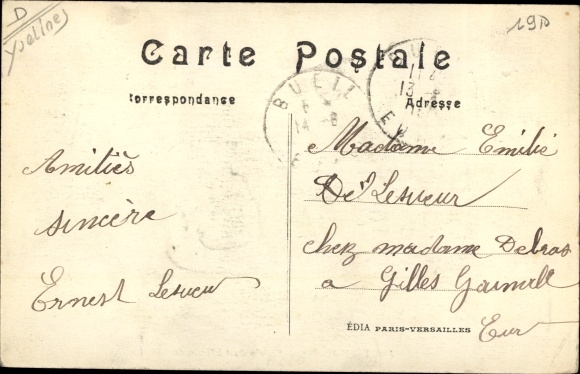 D
Yvelines
Carte Postale
Correspondance
Adresse
BUEIL
14 -8
BUEIL
13 -8
Amitiès
sincère
Ernest Lesueur
Madame Emilie
Lesueur
chez madame Debras
a Gilles
Eur
ÉDIA PARIS-VERSAILLES